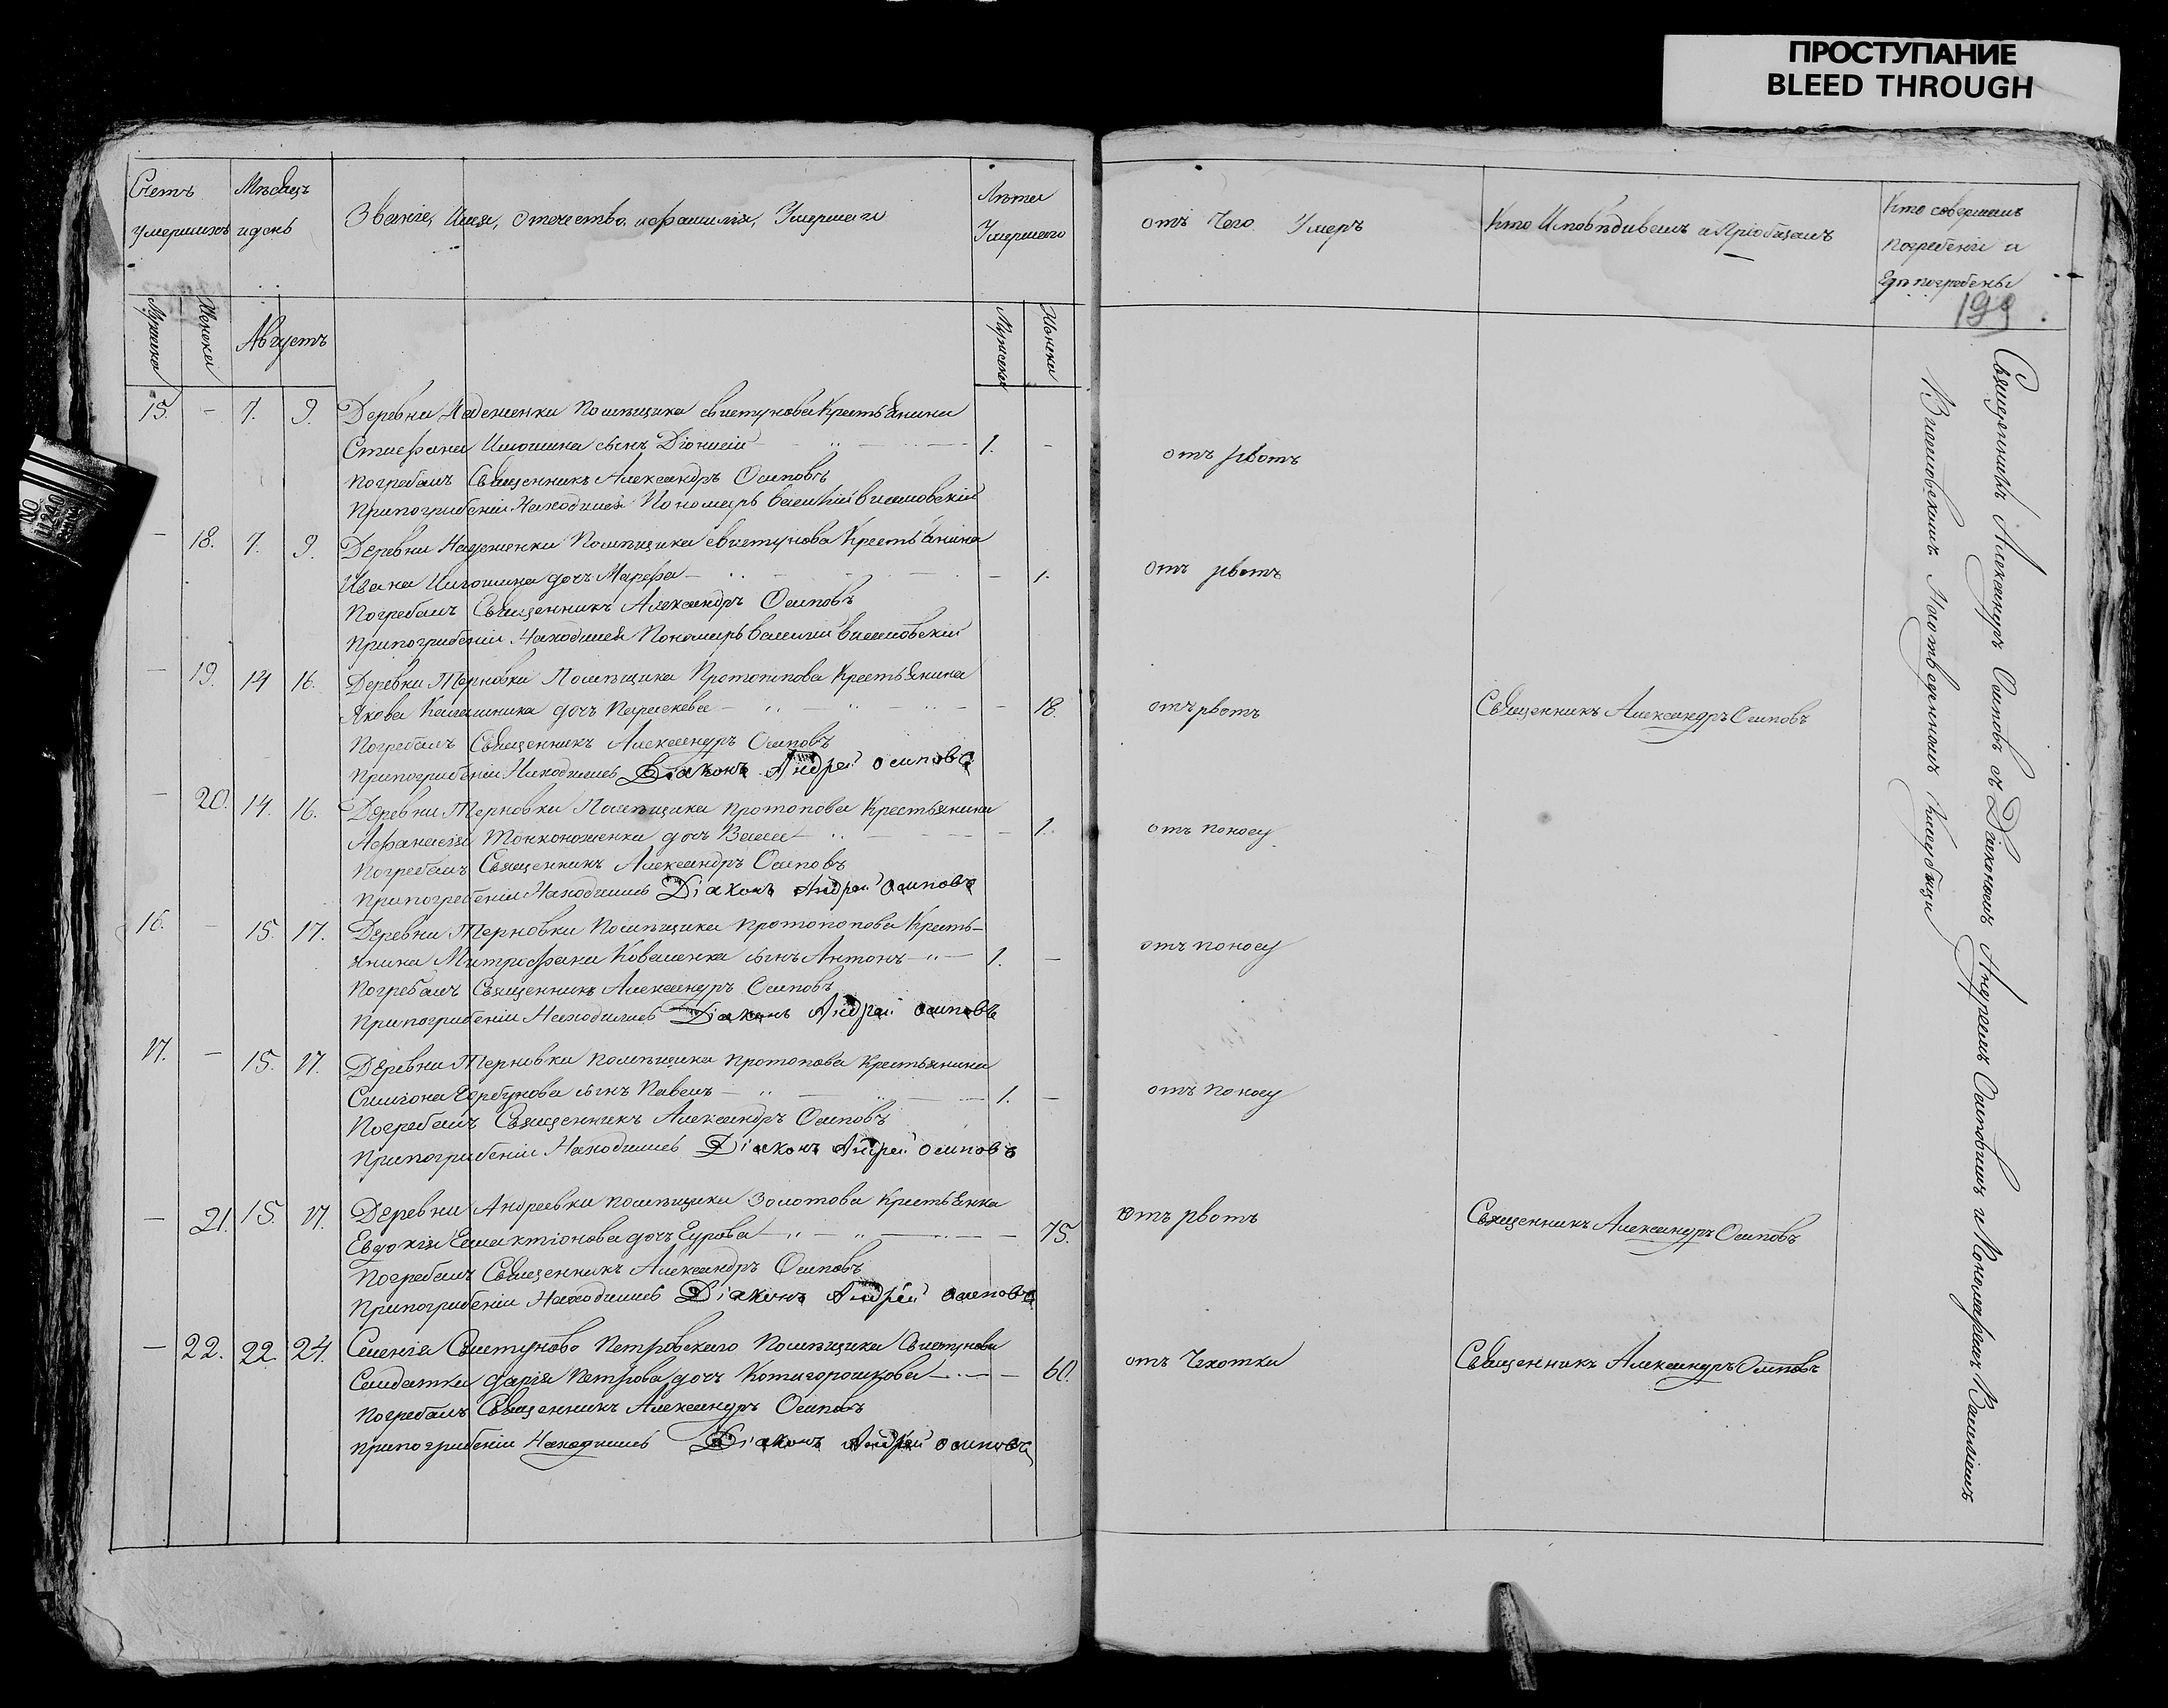 ПРОСТУПАНИЕ
BLEED THROUGH
Счетъ умершихъ
Мѣсяцъ и день
Званіе, Имя, отечество, и фамилія, Умершаго
Лѣта Умершаго
отъ Чего Умеръ
Кто Исповѣдывалъ и Пріобщалъ
Кто совершалъ
погребеніе и
где погребены
199
Мужеска
Женска
Августъ
Мужеска
Женска
15. - 7. 9. Деревни Надеженки Помѣщика Свистунова Крестьянина
Стефана сынъ Діонисій 1. - отъ рвотъ
Погребалъ Священникъ Александръ Осиповъ
При погребеніи Находился Пономарь Василій
- 18. 7. 9. Деревни Надеженки Помѣщика Свистунова Крестьянина
Ивана дочь Марфа - 1. отъ рвотъ
Погребалъ Священникъ Александръ Осиповъ
При погребеніи Находился Пономарь Василій
- 19. 14 16. Деревни Терновки Помѣщика Протопопова Крестьянина
Якова дочь Параскева - 18. отъ рвотъ Священникъ Александръ Осиповъ
Погребалъ Священникъ Александръ Осиповъ
При погребеніи Находились Діаконъ Андрей Осиповъ
- 20. 14. 16. Деревни Терновки Помѣщика Протопова Крестьянина
Афанасія Тонконоженка дочь Васса - 1. отъ поносу
Погребалъ Священникъ Александръ Осиповъ
При погребеніи Находились Діаконъ Андрей Осиповъ
16. - 15. 17. Деревни Терновки Помѣщика Протопопова Кресть-
янина Митрофана Коваленка сынъ Антонъ 1. - отъ поносу
Погребалъ Священникъ Александръ Осиповъ
При погребеніи Находились Діаконъ Андрей Осиповъ
17. - 15. 17. Деревни Терновки Помѣщика Протопова Крестьянина
Симіона Горбунова сынъ Павелъ 1. - отъ поносу
Погребалъ Священникъ Александръ Осиповъ
При погребеніи Находились Діаконъ Андрей Осиповъ
- 21. 15. 17. Деревни Андреевки помѣщика Золотова Крестьянка
Евдокія дочь - 75. отъ рвотъ Священникъ Александръ Осиповъ
Погребалъ Священникъ Александръ Осиповъ
При погребеніи Находились Діаконъ Андрей Осиповъ
- 22. 22 24. Селенія Свистуново Петровскаго Помѣщика Свистунова
Салдатка Дарія Петрова дочь Котигорошкова - 60. отъ Чахотки Священникъ Александръ Осиповъ
Погребалъ Священникъ Александръ Осиповъ
При погребеніи Находились Діаконъ Андрей Осиповъ
Священникъ Александръ Осиповъ съ Діакономъ Андреемъ Осиповымъ и Пономаремъ Василіемъ
На отведенномъ Кладбищи
NO
11240